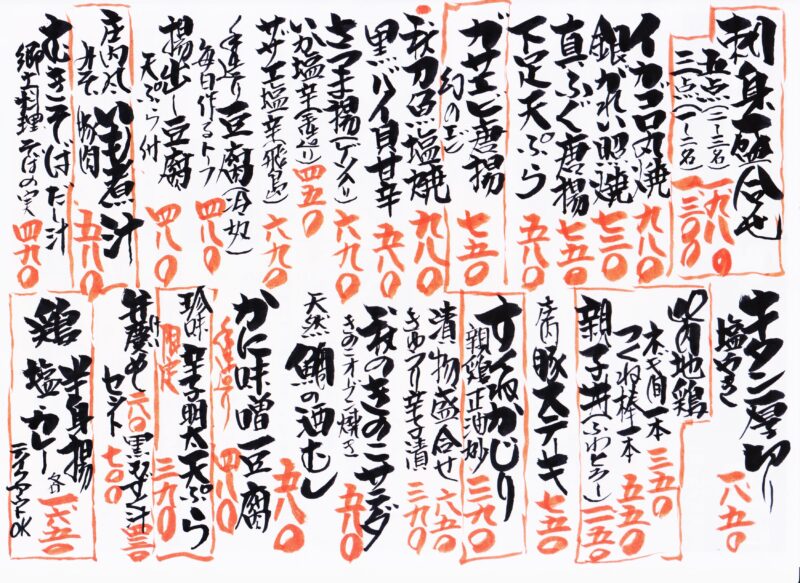 刺身盛合せ
五点(二〜三名) 一九八〇
三点(一〜二名) 一三〇〇
イカゴロ丸焼 九八〇
銀がれい照焼 七三〇
真ふぐ唐揚 七五〇
下足天ぷら 五八〇
ガサエビ唐揚 七五〇
幻のエビ
秋刀魚塩焼 九八〇
黒バイ貝甘辛 五八〇
さつま揚 六九〇
いか塩辛 四五〇
サザエ塩辛(飛島) 六九〇
手造り豆腐(冷奴) 四八〇
毎日作るトーフ
揚出し豆腐 四八〇
天ぷら付
庄内風いも煮汁 五八〇
みそ 豚肉
むきそばだし汁 四九〇
郷土料理 そばの実
牛タン厚切り 一八五〇
塩やき
山形地鶏
ネギ間一本 三五〇
つくね棒一本 五五〇
親子丼(ふわとろ〜) 一一五〇
庄内豚ステーキ 七五〇
すねかじり 三九〇
親鶏正油炒
漬物盛合せ 六五〇
きゅうり辛子漬 三九〇
秋のきのこサラダ 五八〇
きのこオーブン焼き
天然鯛の酒むし 五八〇
かに味噌豆腐 四八〇
手造り
珍味 辛子明太天ぷら 三九〇
限定
セット 七〇〇
鶏半身揚
塩 カレー 各一六五〇
テイクアウトOK